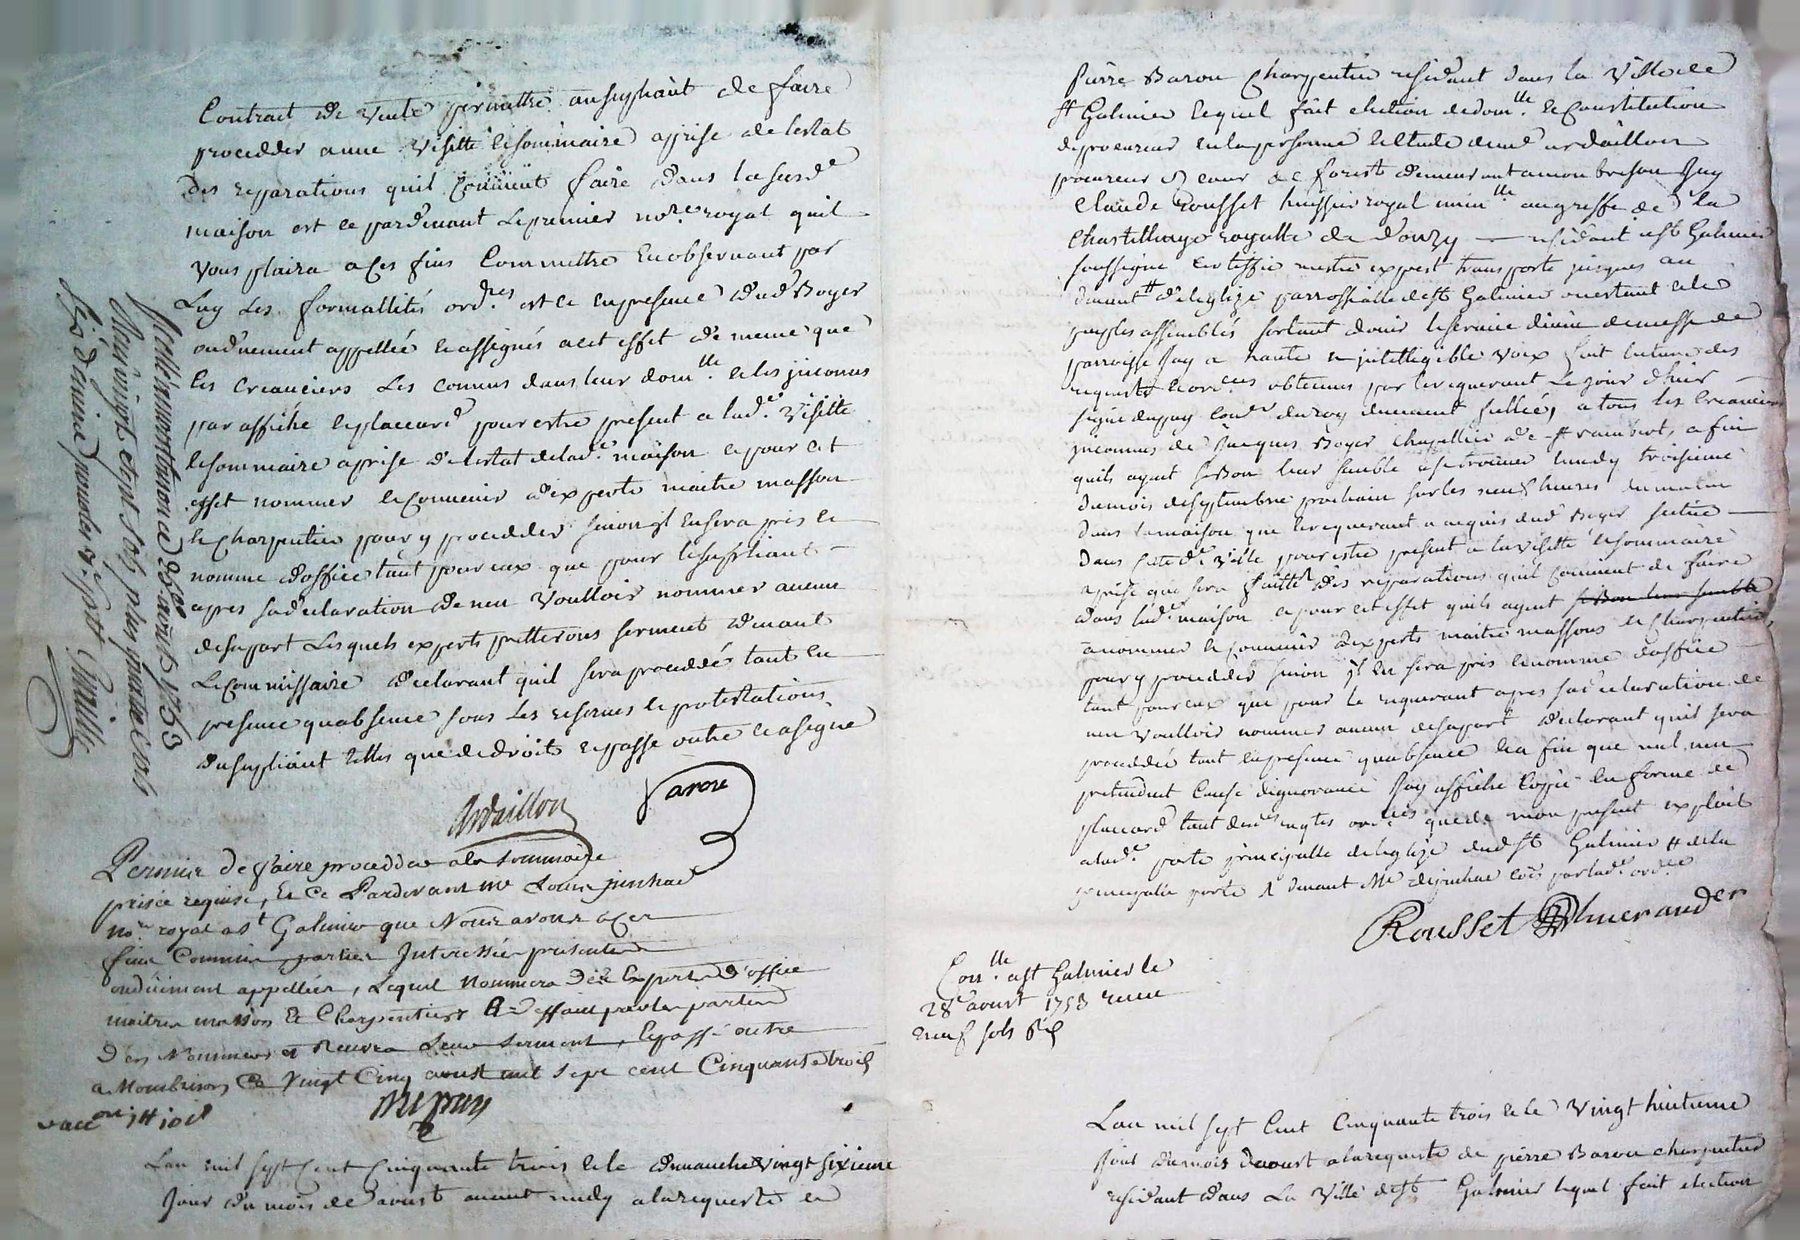 Contract de vente permettre ausupliant de faire
proceder a une visitte et sommaire aprise de lestat
des reparations quil convient faire dans lasusd.e
maison et ce pardevant le premier no.re royal quil
vous plaira a ces fins commettre en observant par
luy les formallités ord.res et ce en presence dud. Boyer
ou düement appellée et assignés a cet effet de meme que
les creanciers les connus dans leur dom.lle et les inconnus
par affiche et placcard pour estre present a lad.e visitte
et sommaire aprise de lestat de lad.e maison et pour cet
effet nommer et convenir dexperts maitre masson
et charpentier pour y procedder sinon il en sera pris et
nomme doffice tant pour eux que pour le supliant
apres sa declaration de neu voulloir nommer aucun
de sa part lesquels experts pretterons serment devant
le commissaire declarant quil sera proceddé tant en
presence quabsence sous les reserves et protestations
du supliant telles que de droit et passe outre et a signe
Ardaillon Baron
Permis de faire procedder a la sommaire
prisée requise, et ce pardevant me Louis
no.re royal a st Galmier que nous avons a ces
fins commis, parties interessées presentes
ou düement appellées, lequel nommera des experts d'office
maitres masson et charpentier a deffaut par les parties
d'en nommer et recevra leur serment, et passé outre
a Montbrison ce vingt cinq aoust mil sept cent cinquante trois
Dupuy
vacc.on 1# 10 s
Lan mil sept cent cinquante trois et le dimanche vingt sixieme
jour du mois de aoust avant midy a la requeste de
Scellé a montbrison ce 25e aoust 1753
Reçu vingt et sept sols plus quatre sols
six deniers pour les
Pierre Baron charpentier residant dans la ville de
st Galmier lequel fait election de dom.lle et constitution
de procureur en la personne et etude de me ardaillon
procureur es cour de forest demeurant a montbrison Jay
Claude Rousset huissier royal imm.lle au greffe de la
chastellenye royalle de Donzy residant a st Galmier
soussigné certiffie mestre expres transporte jusques au
devant de leglize parroissialle de st Galmier ou estant et le
peuples assemblés sortant douir le service divin de messe de
parroisse Jay a haute et intelligible voix fait lecture des
requeste et ord.ces obtenues par le requerant le jour dhier
signe dupuy con.er du roy duement scellée, a tous les creanciers
inconnus de Jacques Boyer chapellier de st rambert, afin
quils ayent si bon leur semble a se trouver lundy troisieme
du mois de septembre prochain sur les neuf heures du matin
dans la maison que le requerant a acquis dud. Boyer scituée
dans cette d.e ville pour estre present a la visitte et sommaire
aprise qui sera faitte des reparations quil convient de faire
dans lad. maison et pour cet effet quils ayent si bon leur semble
a nommer et convenir dexperts maitre massons et charpentiers,
pour y procedder sinon il en sera pris et nomme doffice
tant pour eux que pour le requerant apres sa declaration de
neu voulloir nommer aucun de sa part declarant quil sera
proceddé tant en presence quabsence et a fin que nul neu
pretendent cause dignorance Jay affiche coppie en forme de
placcard tant des.es req.tes ord.ces que de mon present exploit
a lad.e porte principalle de leglize dud. st Galmier # de la
principalle porte
Rousset
Con.lle a st Galmier le
28e aoust 1753 reçu
neuf sols 6 d
Lan mil sept cent cinquante trois et le vingt huitieme
jour du mois daoust a la requeste de pierre Baron charpentier
residant dans la ville de st Galmier lequel fait election